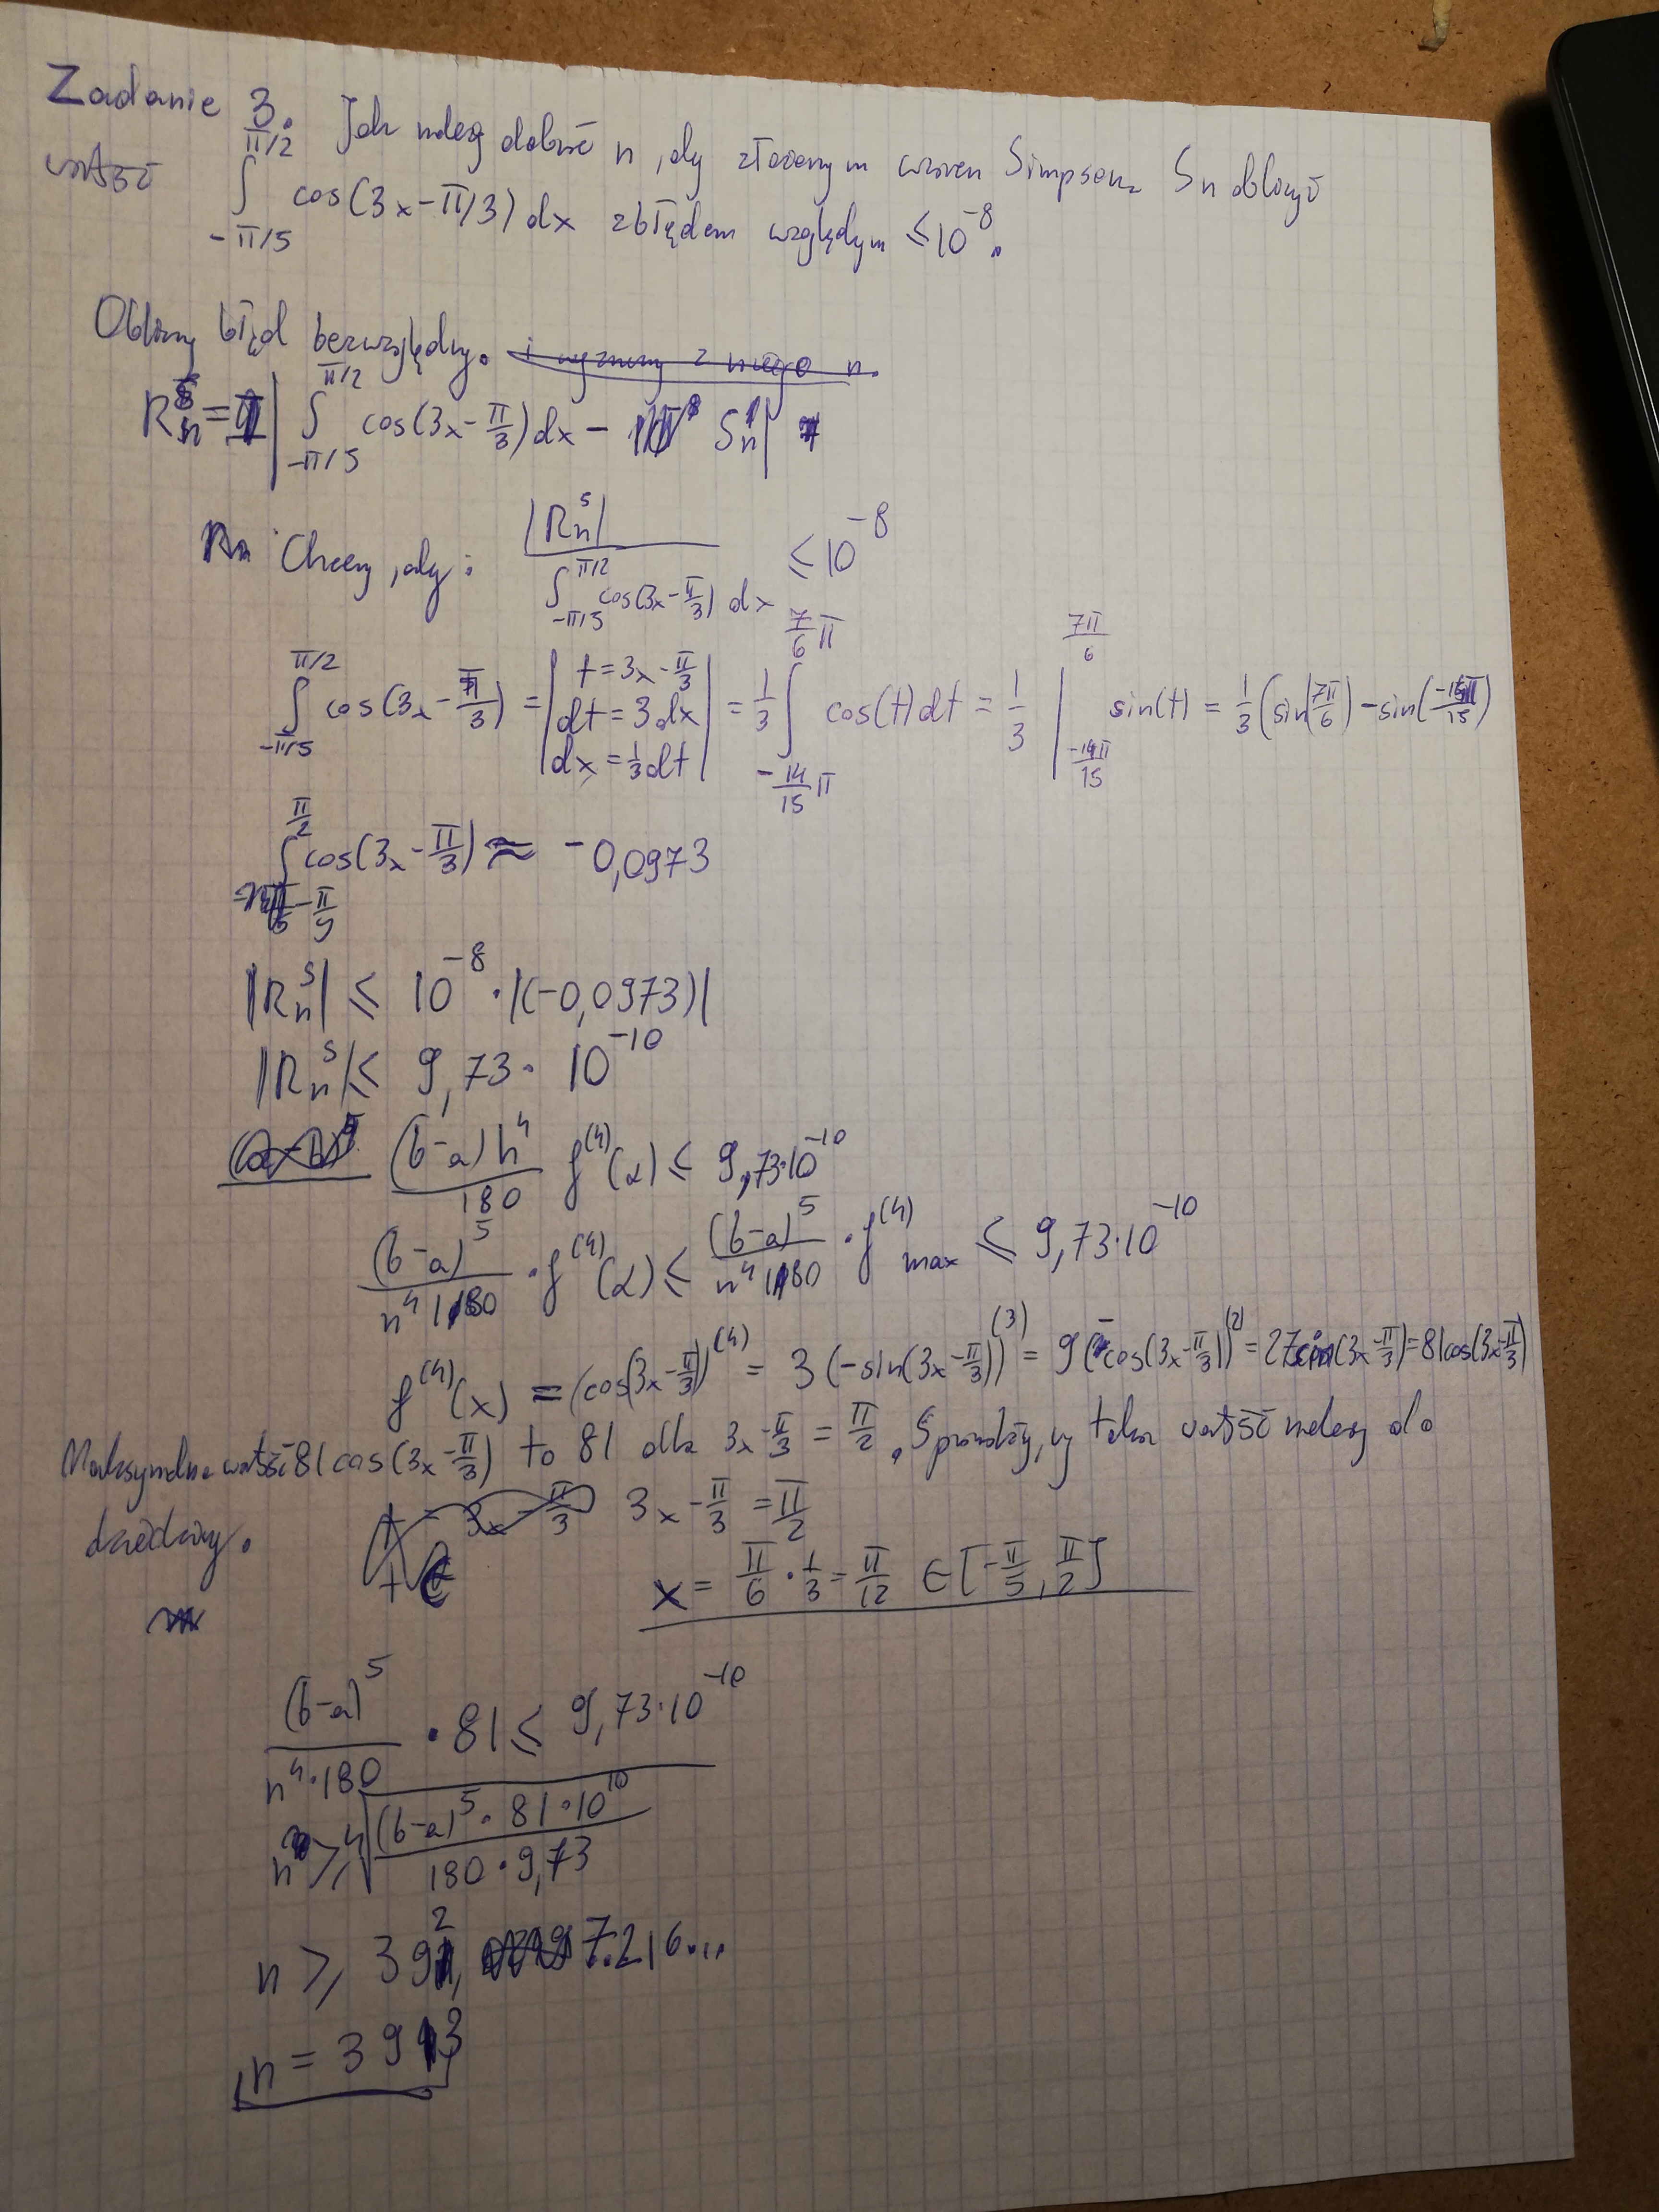 Zadanie 3. Jak należy dobrać n, aby złożonym wzorem Simpsona Sn obliczyć
wartość ∫_{-π/5}^{π/2} cos(3x-π/3) dx z błędem względnym ≤ 10^{-8}.
Obliczmy błąd bezwzględny.
R_n^s = | ∫_{-π/5}^{π/2} cos(3x - π/3) dx - S_n |
Chcemy, aby: |R_n^s| / ∫_{-π/5}^{π/2} cos(3x - π/3) dx ≤ 10^{-8}
∫_{-π/5}^{π/2} cos(3x - π/3) = | t = 3x - π/3 | dt = 3dx | dx = 1/3 dt | = 1/3 ∫_{-14/15 π}^{7/6 π} cos(t) dt = 1/3 |_{-14π/15}^{7π/6} sin(t) = 1/3 (sin(7π/6) - sin(-14π/15)
∫_{-π/5}^{π/2} cos(3x - π/3) ≈ -0,0973
|R_n^s| ≤ 10^{-8} · |(-0,0973)|
|R_n^s| ≤ 9,73 · 10^{-10}
(b-a)h^4 / 180 f^{(4)}(α) ≤ 9,73·10^{-10}
(b-a)^5 / n^4 180 · f^{(4)}(α) ≤ (b-a)^5 / n^4 180 · f^{(4)}_{max} ≤ 9,73·10^{-10}
f^{(4)}(x) = (cos(3x - π/3))^{(4)} = 3(-sin(3x - π/3))^{(3)} = 9(-cos(3x - π/3))^{(2)} = 27 sin(3x - π/3) = 81cos(3x - π/3)
Maksymalna wartość 81cos(3x - π/3) to 81 dla 3x - π/3 = π/2. Sprawdźmy, czy taka wartość należy do
dziedziny. 3x - π/3 = π/2
x = π/6 · 1/3 = π/12 ∈ [-π/5, π/2]
(b-a)^5 / n^4·180 · 81 ≤ 9,73·10^{-10}
n ≥ ⁴√((b-a)^5 · 81 · 10^{10} / 180 · 9,73)
n ≥ 392, 7216...
n = 393